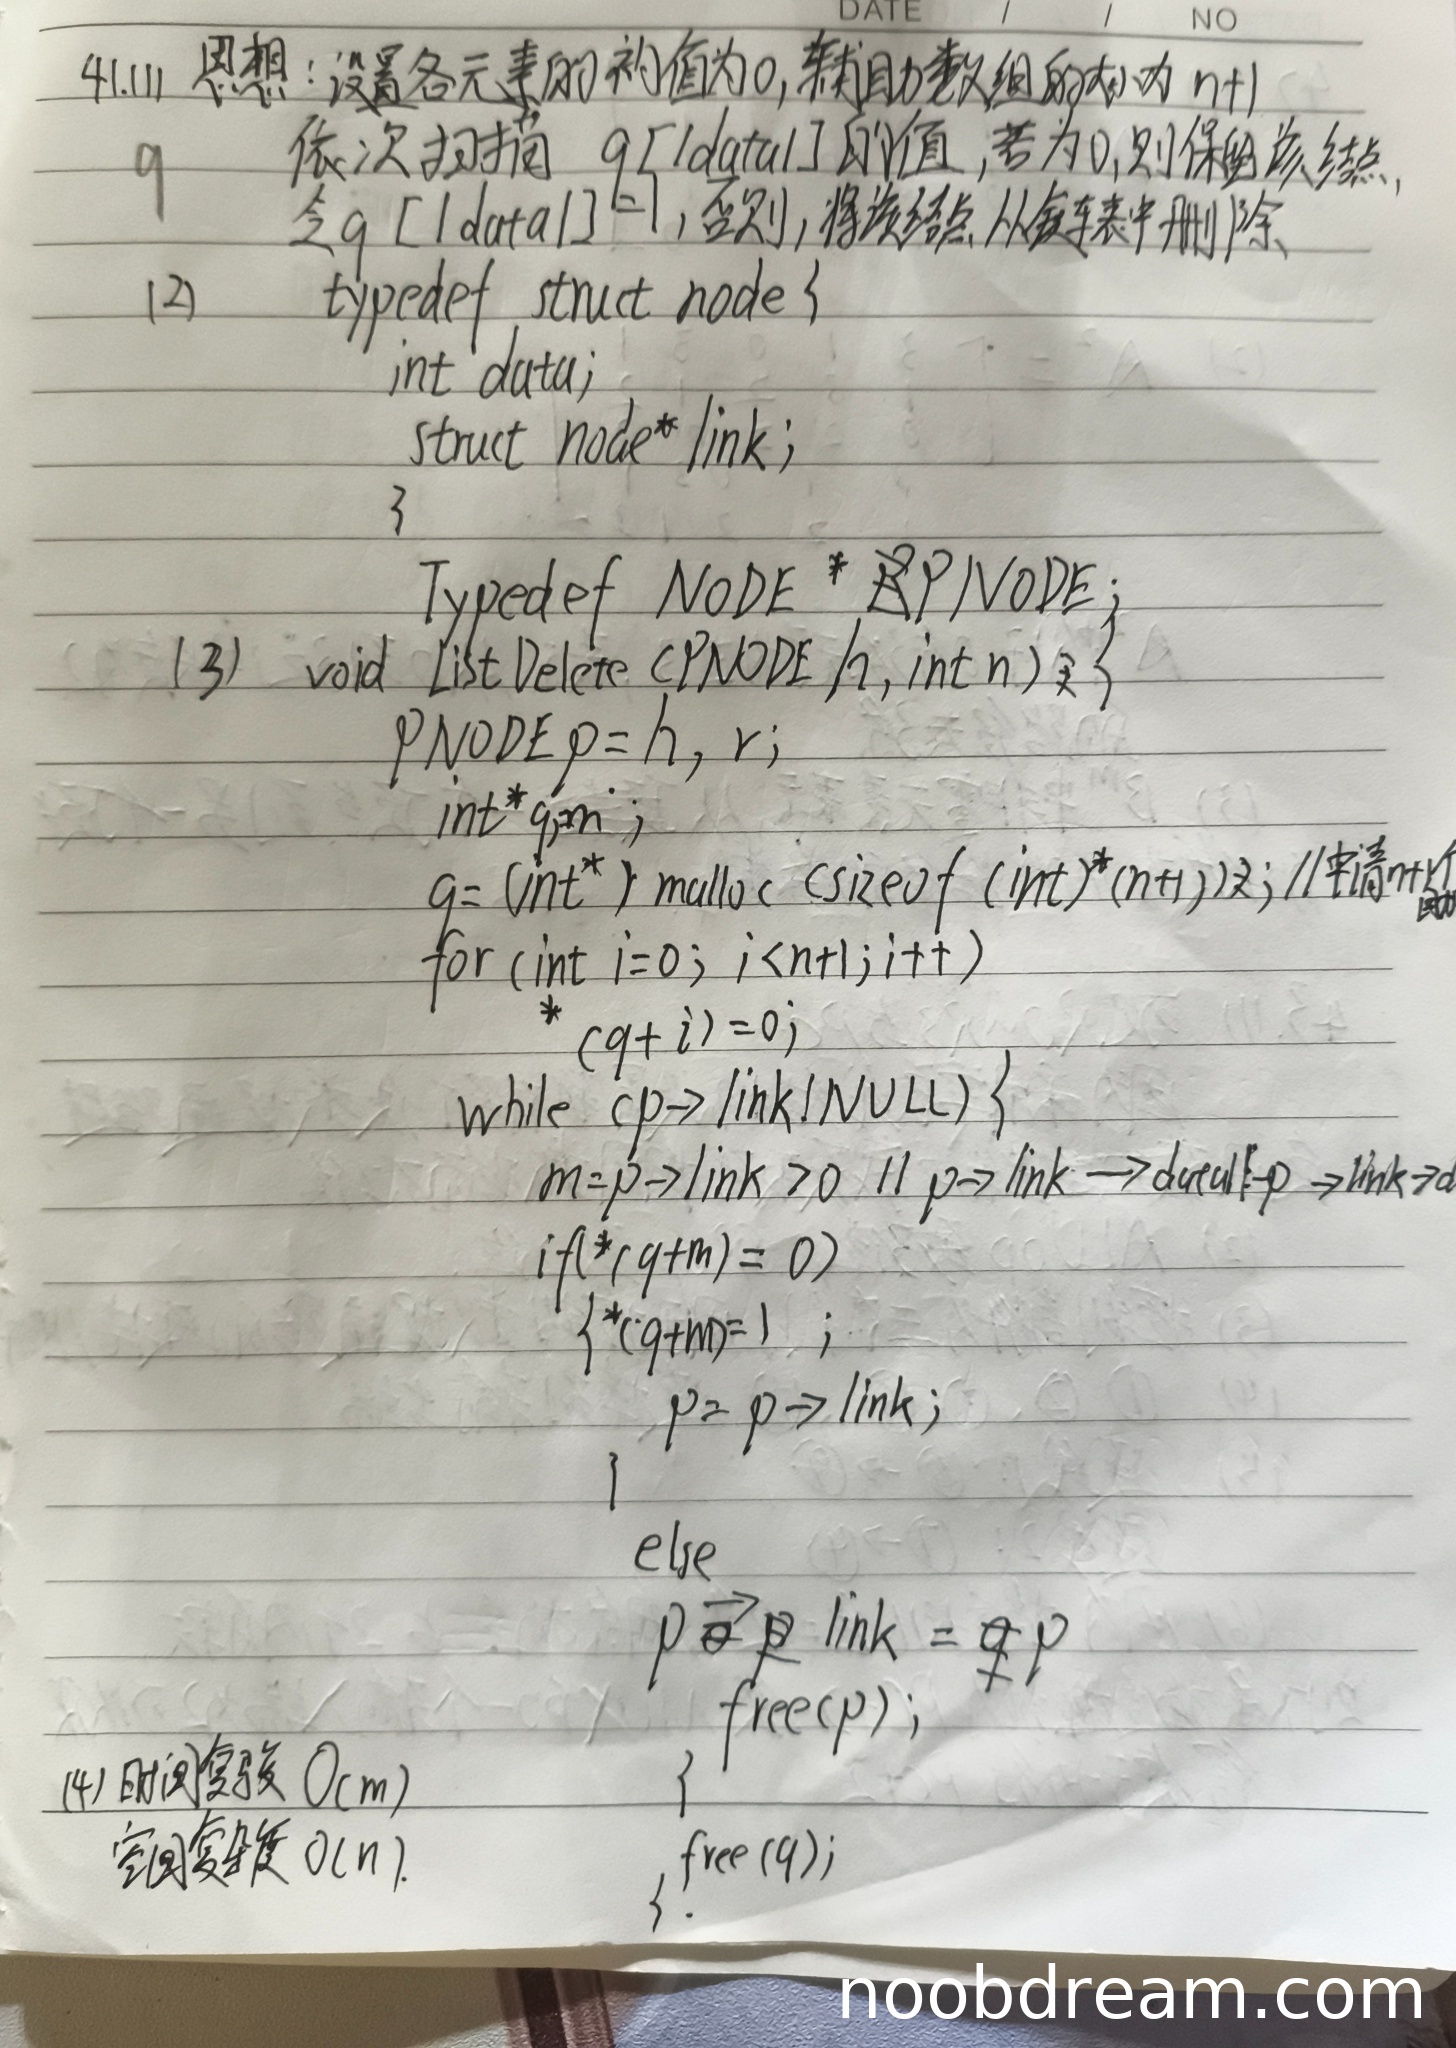 DATE / / NO
41.(1) 思想：设置各元素的初值为0，辅助数组的大小为 n+1
q 依次扫描 q[|data|]的值，若为0，则保留该结点，
令q [|data|]=1，否则，将该结点从链表中删除
(2) typedef struct node {
int data;
struct node* link;
}
Typedef NODE * PNODE;
(3) void ListDelete (PNODE h, int n) {
PNODE p=h, r;
int* q,m;
q= (int*) malloc (sizeof (int)*(n+1)); //申请n+1个
for (int i=0; i<n+1; i++)
*(q+i)=0;
while (p->link!NULL) {
m=p->link >0 || p->link ->data:-p ->link->d
if(*(q+m)= 0)
{*(q+m)=1 ;
p= p->link;
}
else
p -> link = p
free(p);
}
(4) 时间复杂度 O(m)
空间复杂度 O(n).
free(q);
}.
noobdream.com